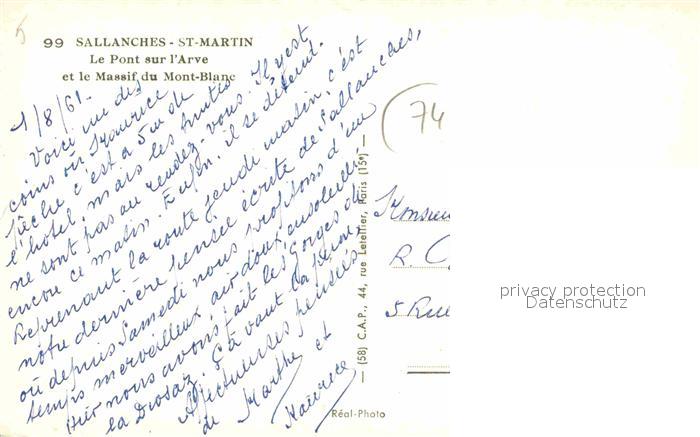 99 SALLANCHES - ST-MARTIN
Le Pont sur l'Arve
et le Massif du Mont-Blanc
1/8/61.
Voici un des
coins où Maurice
pêche c'est à 5 m de
l'hôtel, mais les truites
ne sont pas au rendez-vous. Il y est
encore ce matin. Enfin, il se défend.
Reprenant la route jeudi matin, c'est
notre dernière pensée écrite de Sallanches,
où depuis Samedi nous profitons d'un
temps merveilleux, air doux, ensoleillé
Hier nous avons fait les Gorges de
la Diosaz. Çà vaut
Affectueuses pensées
de Marthe et
Maurice
(58) C.A.P., 44, rue Letellier, Paris (15e)
Réal-Photo
74
Monsieur
R.
5 Rue
privacy protection
Datenschutz